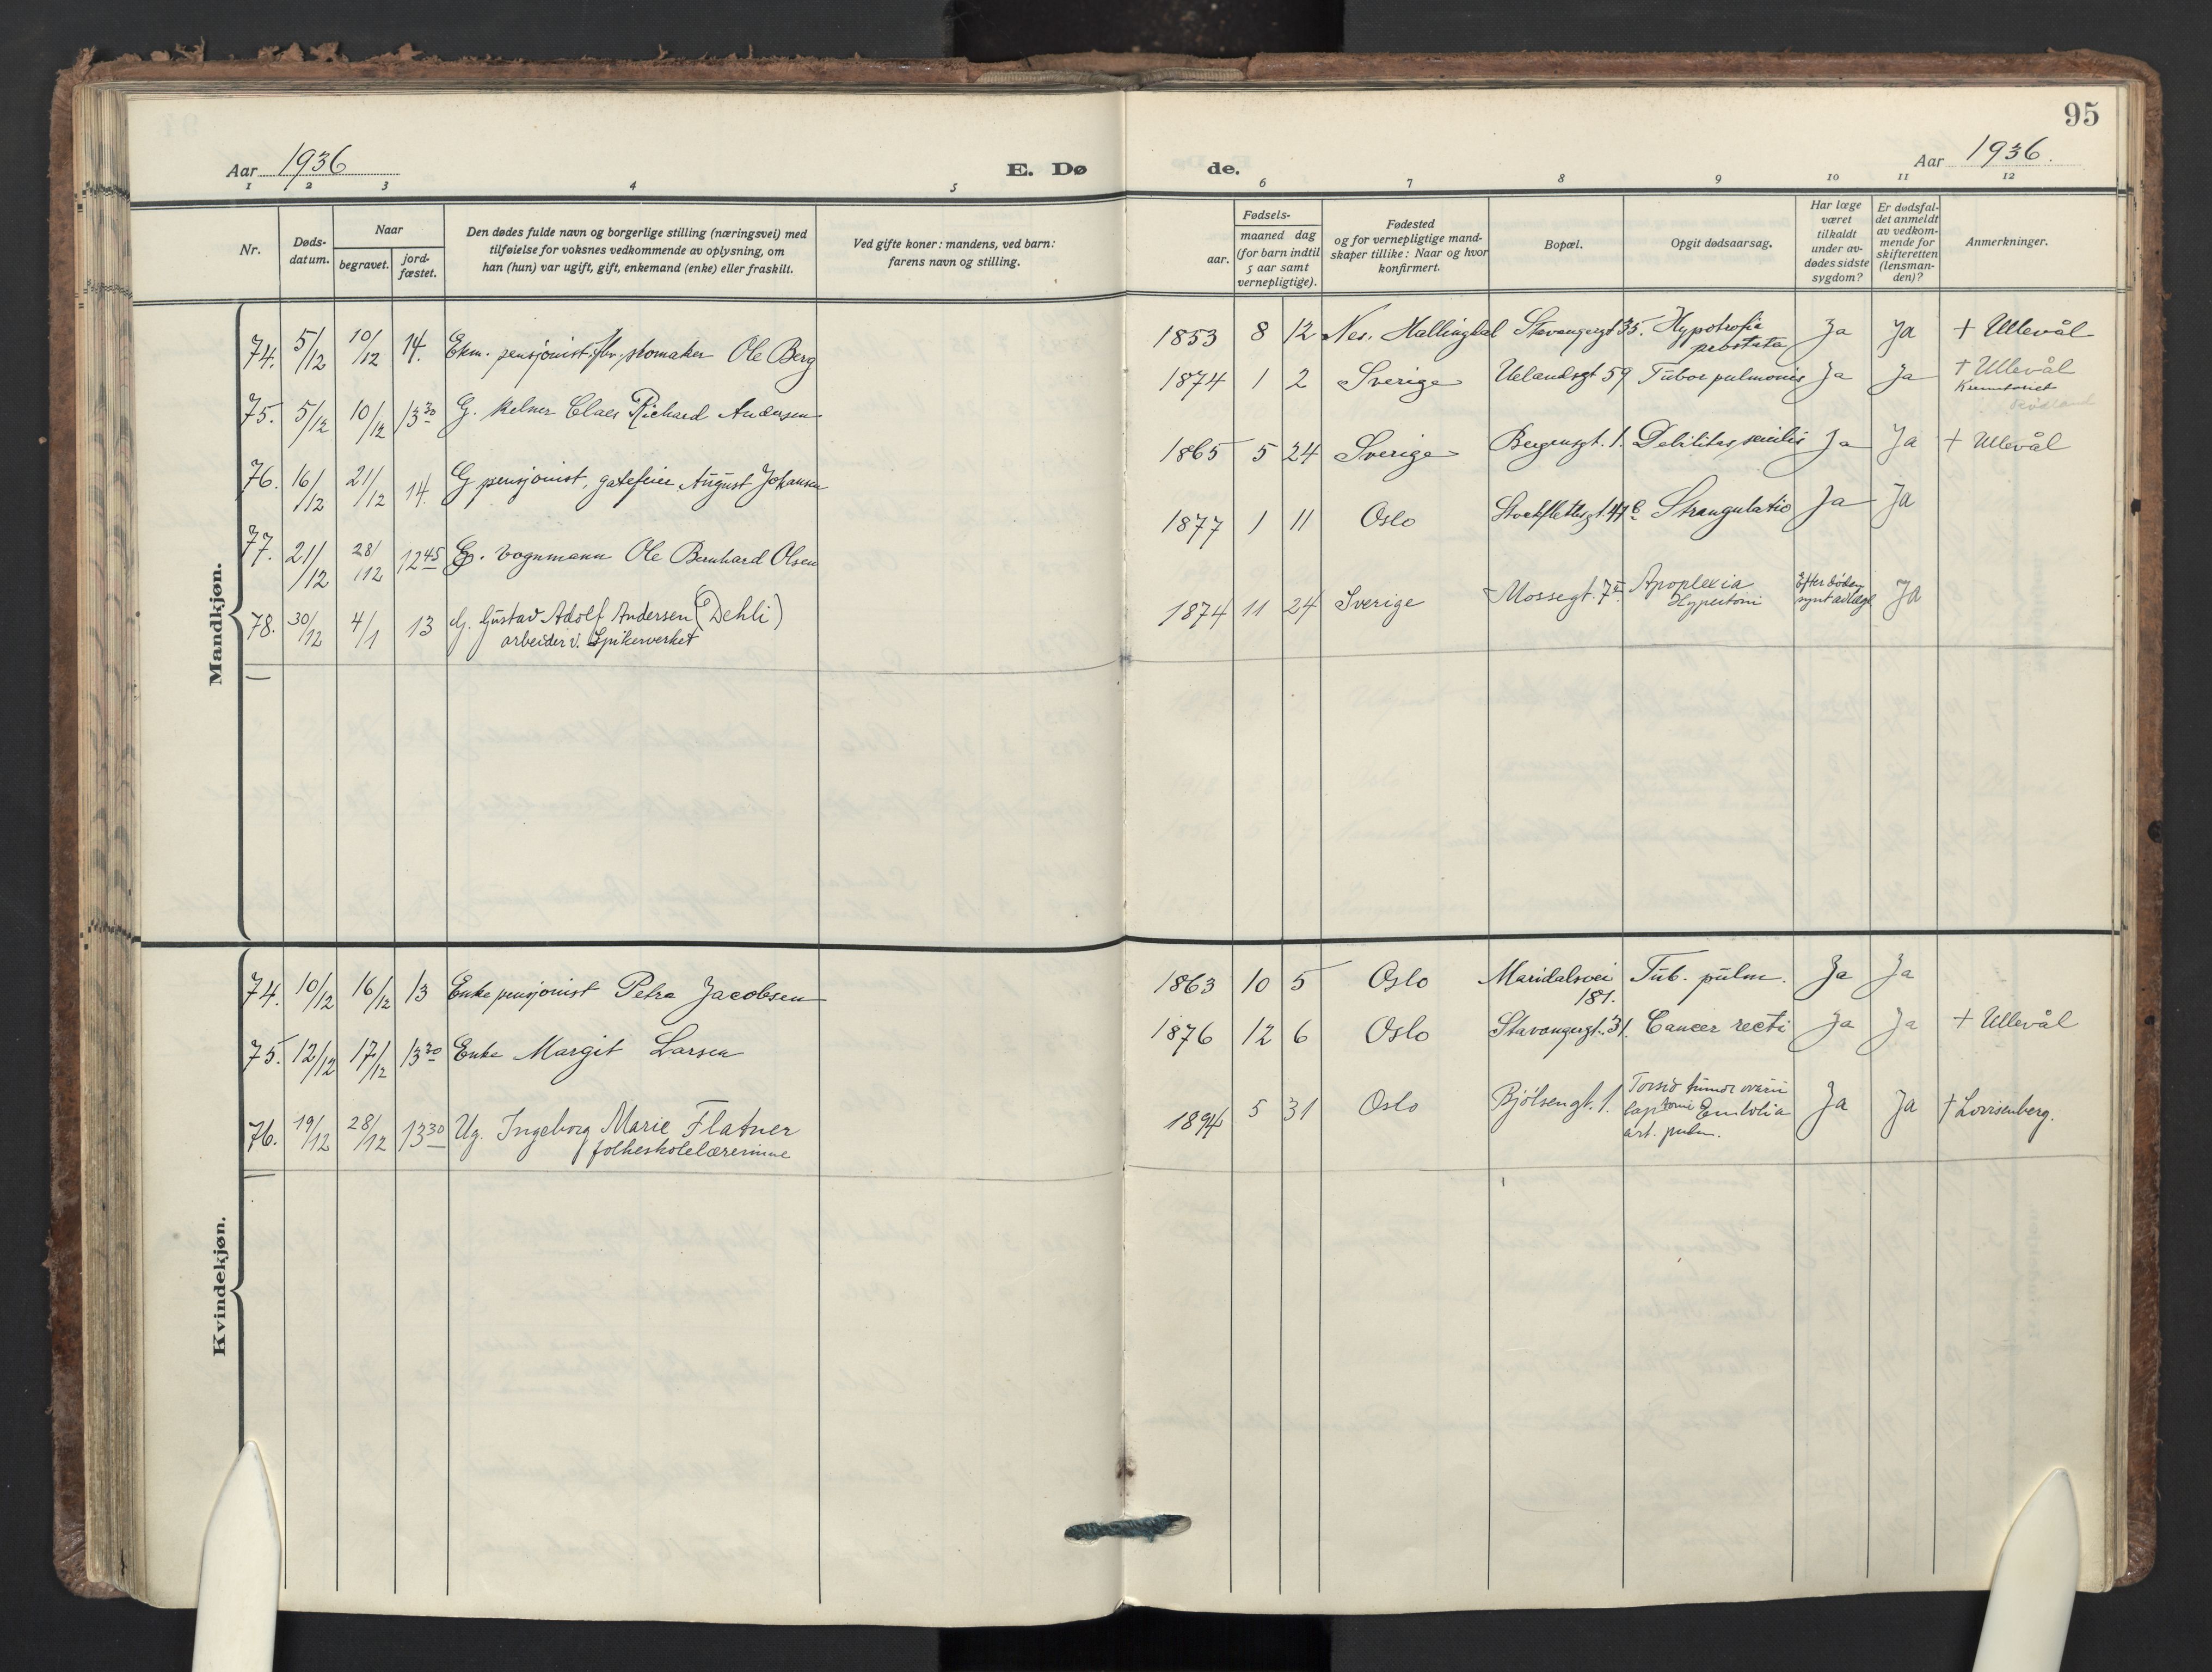 95
Aar 1936
E. Dø
de.
Aar 1936.
1 2 3 4 5
6 7 8 9 10 11 12
Nr.
Døds-
datum.
Naar
begravet.
jord-
fæstet.
Den dødes fulde navn og borgerlige stilling (næringsvei) med
tilføielse for voksnes vedkommende av oplysning, om
han (hun) var ugift, gift, enkemand (enke) eller fraskilt.
Ved gifte koner: mandens, ved barn:
farens navn og stilling.
Fødsels-
aar.
maaned dag
(for barn indtil
5 aar samt
vernepligtige).
Fødested
og for vernepligtige mand-
skaper tillike: Naar og hvor
konfirmert.
Bopæl.
Opgit dødsaarsag.
Har læge
været
tilkaldt
under av-
dødes sidste
sygdom?
Er dødsfal-
det anmeldt
av vedkom-
mende for
skifteretten
(lensman-
den)?
Anmerkninger.
Mandkjøn.
74. 5/12 10/12 14. Ekm. pensjonist, skomaker Ole Berg
1853 8 12 Nes. Hallingdal Stavangergt 35. Hypotrofia
prostata
Ja Ja + Ullevål
75. 5/12 10/12 13 30 G. kelner Claes Richard Andersen
1874 1 2 Sverige Uelandsgt 59 Tuber pulmonis Ja Ja + Ullevål
Krematoriet
76. 16/12 21/12 14. G. pensjonist, gatefeier August Johansen
1865 5 24 Sverige Bergensgt. 1. Debilitas senilis Ja Ja + Ullevål
77. 21/12 28/12 12 45 G. Vognmann Ole Bernhard Olsen
1877 1 11 Oslo Stockflethsgt. Strangulatio Ja Ja
78. 30/12 4/1 13 G. Gustav Adolf Andersen (Dehli)
arbeider v. Spikerverket
1874 11 24 Sverige Mossegt. 7 II Apoplexia
Hypertoni
Efter døden
synt av læge
Ja
Kvindekjøn.
74. 10/12 16/12 13 Enke pensjonist Petra Jacobsen
1863 10 5 Oslo Maridalsvei
181.
Tub. pulm. Ja Ja
75. 12/12 17/12 13 30 Enke Margit Larsen
1876 12 6 Oslo Stavangergt. 31. Cancer recti Ja Ja + Ullevål
76. 19/12 28/12 13 30 Ug. Ingeborg Marie Flatner
folkeskolelærerinne
1894 5 31 Oslo Bjølsengt. 1. Torsio tumor ovarii
Laptomi Embolia
art. pulm.
Ja Ja + Lovisenberg.